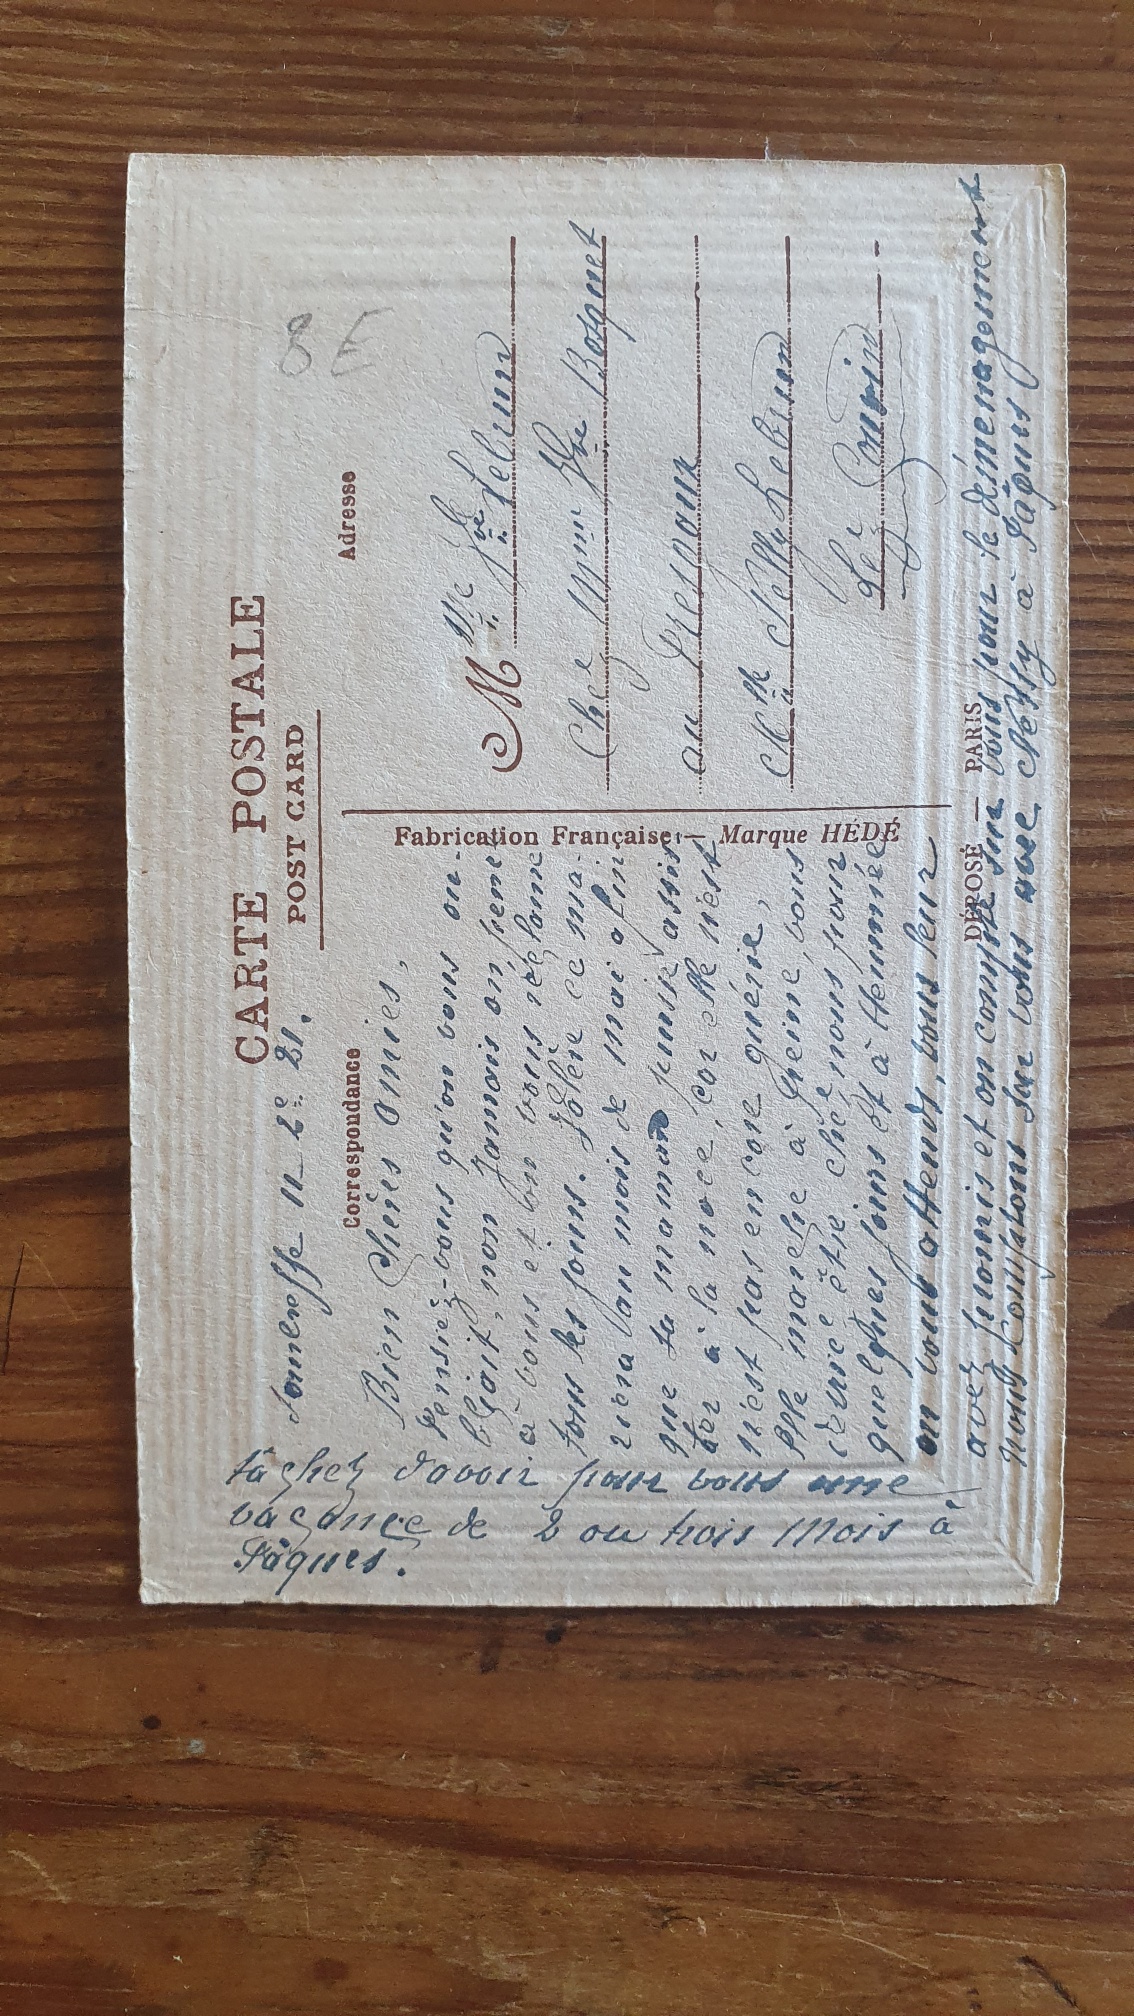 CARTE POSTALE
POST CARD
8 E
Correspondance
Adresse
2e 21.
Bien Chères amies,
Pensiez-vous qu'on vous ou-
bliait, non Jamais on pense
à vous et on vous réclame
tous les jours. Valère ce ma-
riera au mois de mai afin
que sa maman puisse assis
ter à la noce, car elle n'est
n'est pas encore guérie,
Elle marche à peine, vous
deviez être chez nous pour
quelques jours et à Hennuée
on vous attends, vous leur
avez promis et on compte sur vous pour le déménagement
nous comptons sur vous avec Nelly à Pâques
tâchez d'avoir pour vous une
vacance de 2 ou trois mois à
Pâques.
Fabrication Française — Marque HÉDÉ
M Vve Lebrun
Chez Mme Vve Bosquet
au
Mlle Nelly Lebrun
DÉPOSÉ — PARIS